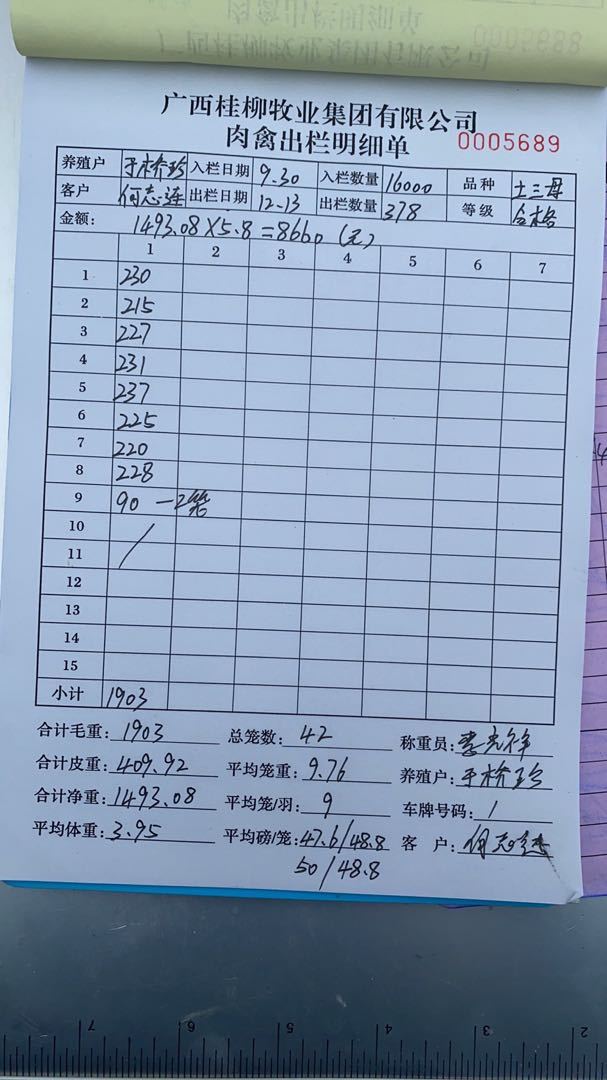 广西桂柳牧业集团有限公司
肉禽出栏明细单 0005689
养殖户 于桥珍 入栏日期 9.30 入栏数量 16000 品种 土三母
客户 何志连 出栏日期 12-13 出栏数量 378 等级 合格
金额: 1493.08×5.8=8660(元)
1 2 3 4 5 6 7
1 230
2 215
3 227
4 231
5 237
6 225
7 220
8 228
9 90 —2笼
10
11
12
13
14
15
小计 1903
合计毛重: 1903 总笼数: 42 称重员:
合计皮重: 409.92 平均笼重: 9.76 养殖户: 于桥珍
合计净重: 1493.08 平均笼/羽: 9 车牌号码: /
平均体重: 3.95 平均磅/笼: 47.6/48.8 客 户:
50/48.8
7 6 5 4 3 2